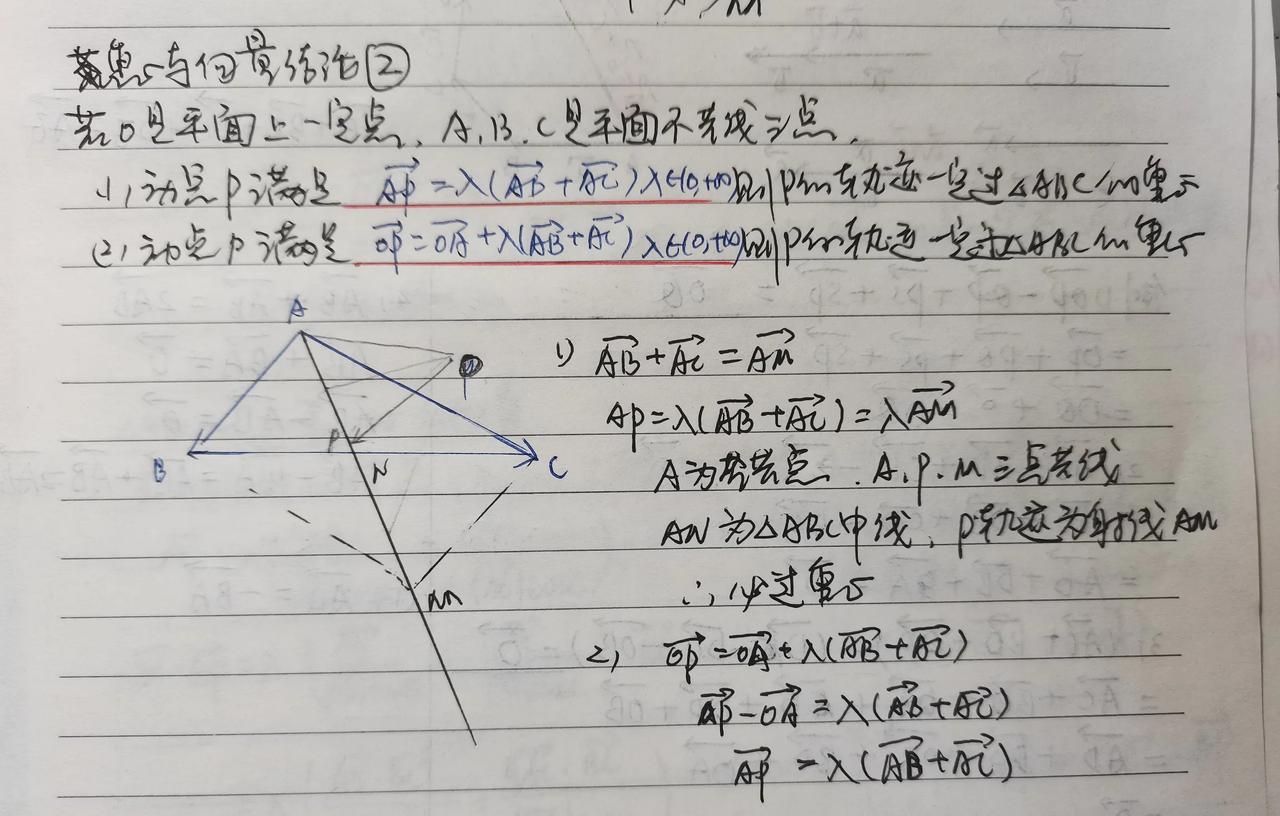 重心与向量结论②
若O是平面上一定点、A、B、C是平面不共线三点、
(1)动点P满足 AP = λ(AB + AC) λ∈(0,+∞)则P的轨迹一定过△ABC的重心
(2)动点P满足 OP = OA + λ(AB + AC) λ∈(0,+∞)则P的轨迹一定过△ABC的重心
A
B
C
P
N
M
1) AB + AC = AM
AP = λ(AB + AC) = λAM
A为公共点、A、P、M三点共线
AN为△ABC中线、P轨迹为射线AM
∴必过重心
2) OP = OA + λ(AB + AC)
AP - OA = λ(AB + AC)
AP = λ(AB + AC)